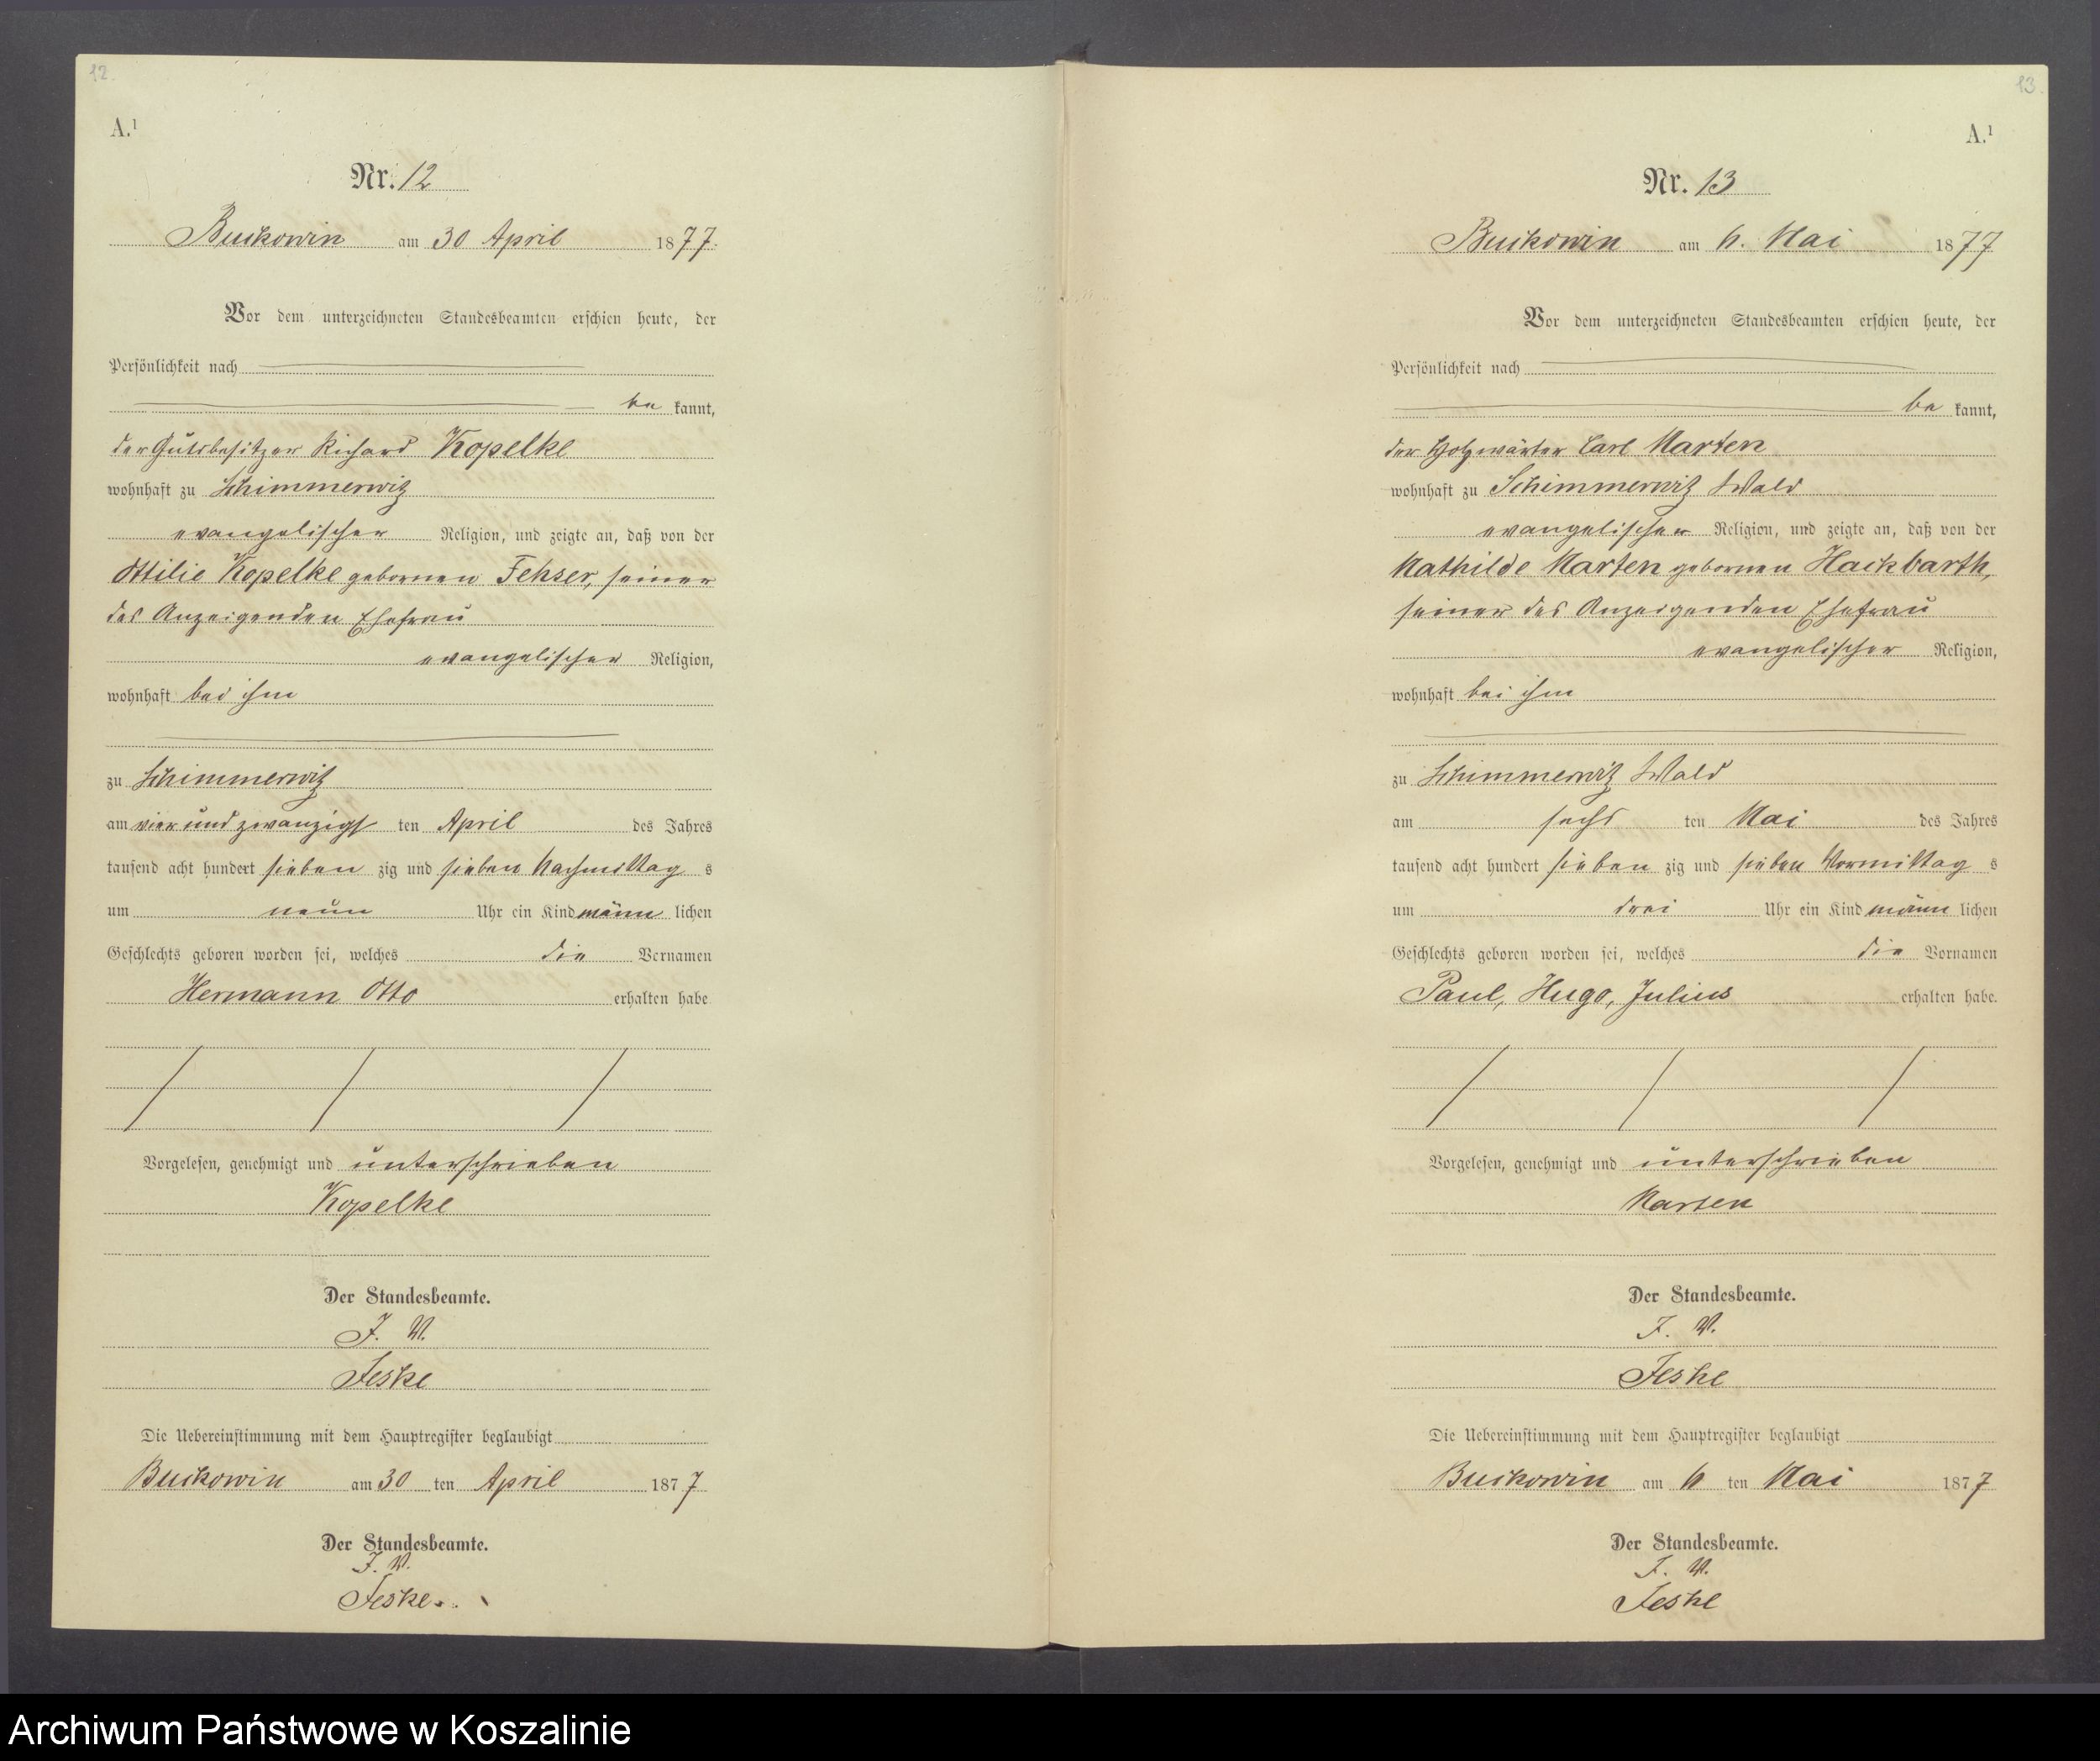 12.
A.¹
Nr. 12
Buckowin am 30 April 1877.
Vor dem unterzeichneten Standesbeamten erschien heute, der
Persönlichkeit nach
be kannt,
der Gutsbesitzer Richard Kopelke
wohnhaft zu Schimmerwitz
evangelischer Religion, und zeigte an, daß von der
Ottilie Kopelke gebornen Fehser, seiner
des Anzeigenden Ehefrau
evangelischer Religion,
wohnhaft bei ihm
zu Schimmerwitz
am vier und zwanzigs ten April des Jahres
tausend acht hundert sieben zig und sieben Nachmittag s
um neun Uhr ein Kind männ lichen
Geschlechts geboren worden sei, welches die Vornamen
Hermann Otto erhalten habe
Vorgelesen, genehmigt und unterschrieben
Kopelke
Der Standesbeamte.
J. V.
Jeske
Die Uebereinstimmung mit dem Hauptregister beglaubigt
Buckowin am 30 ten April 1877
Der Standesbeamte.
J. V.
Jeske.
13.
A.¹
Nr. 13
Buckowin am 6. Mai 1877
Vor dem unterzeichneten Standesbeamten erschien heute, der
Persönlichkeit nach
be kannt,
der Holzwärter Carl Marten
wohnhaft zu Schimmerwitz Wald
evangelischer Religion, und zeigte an, daß von der
Mathilde Marten gebornen Hackbarth,
seiner des Anzeigenden Ehefrau
evangelischer Religion,
wohnhaft bei ihm
zu Schimmerwitz Wald
am sechs ten Mai des Jahres
tausend acht hundert sieben zig und sieben Vormittag s
um drei Uhr ein Kind männ lichen
Geschlechts geboren worden sei, welches die Vornamen
Paul, Hugo, Julius erhalten habe.
Vorgelesen, genehmigt und unterschrieben
Marten
Der Standesbeamte.
J. V.
Jeske
Die Uebereinstimmung mit dem Hauptregister beglaubigt
Buckowin am 6 ten Mai 1877
Der Standesbeamte.
J. V.
Jeske
Archiwum Państwowe w Koszalinie